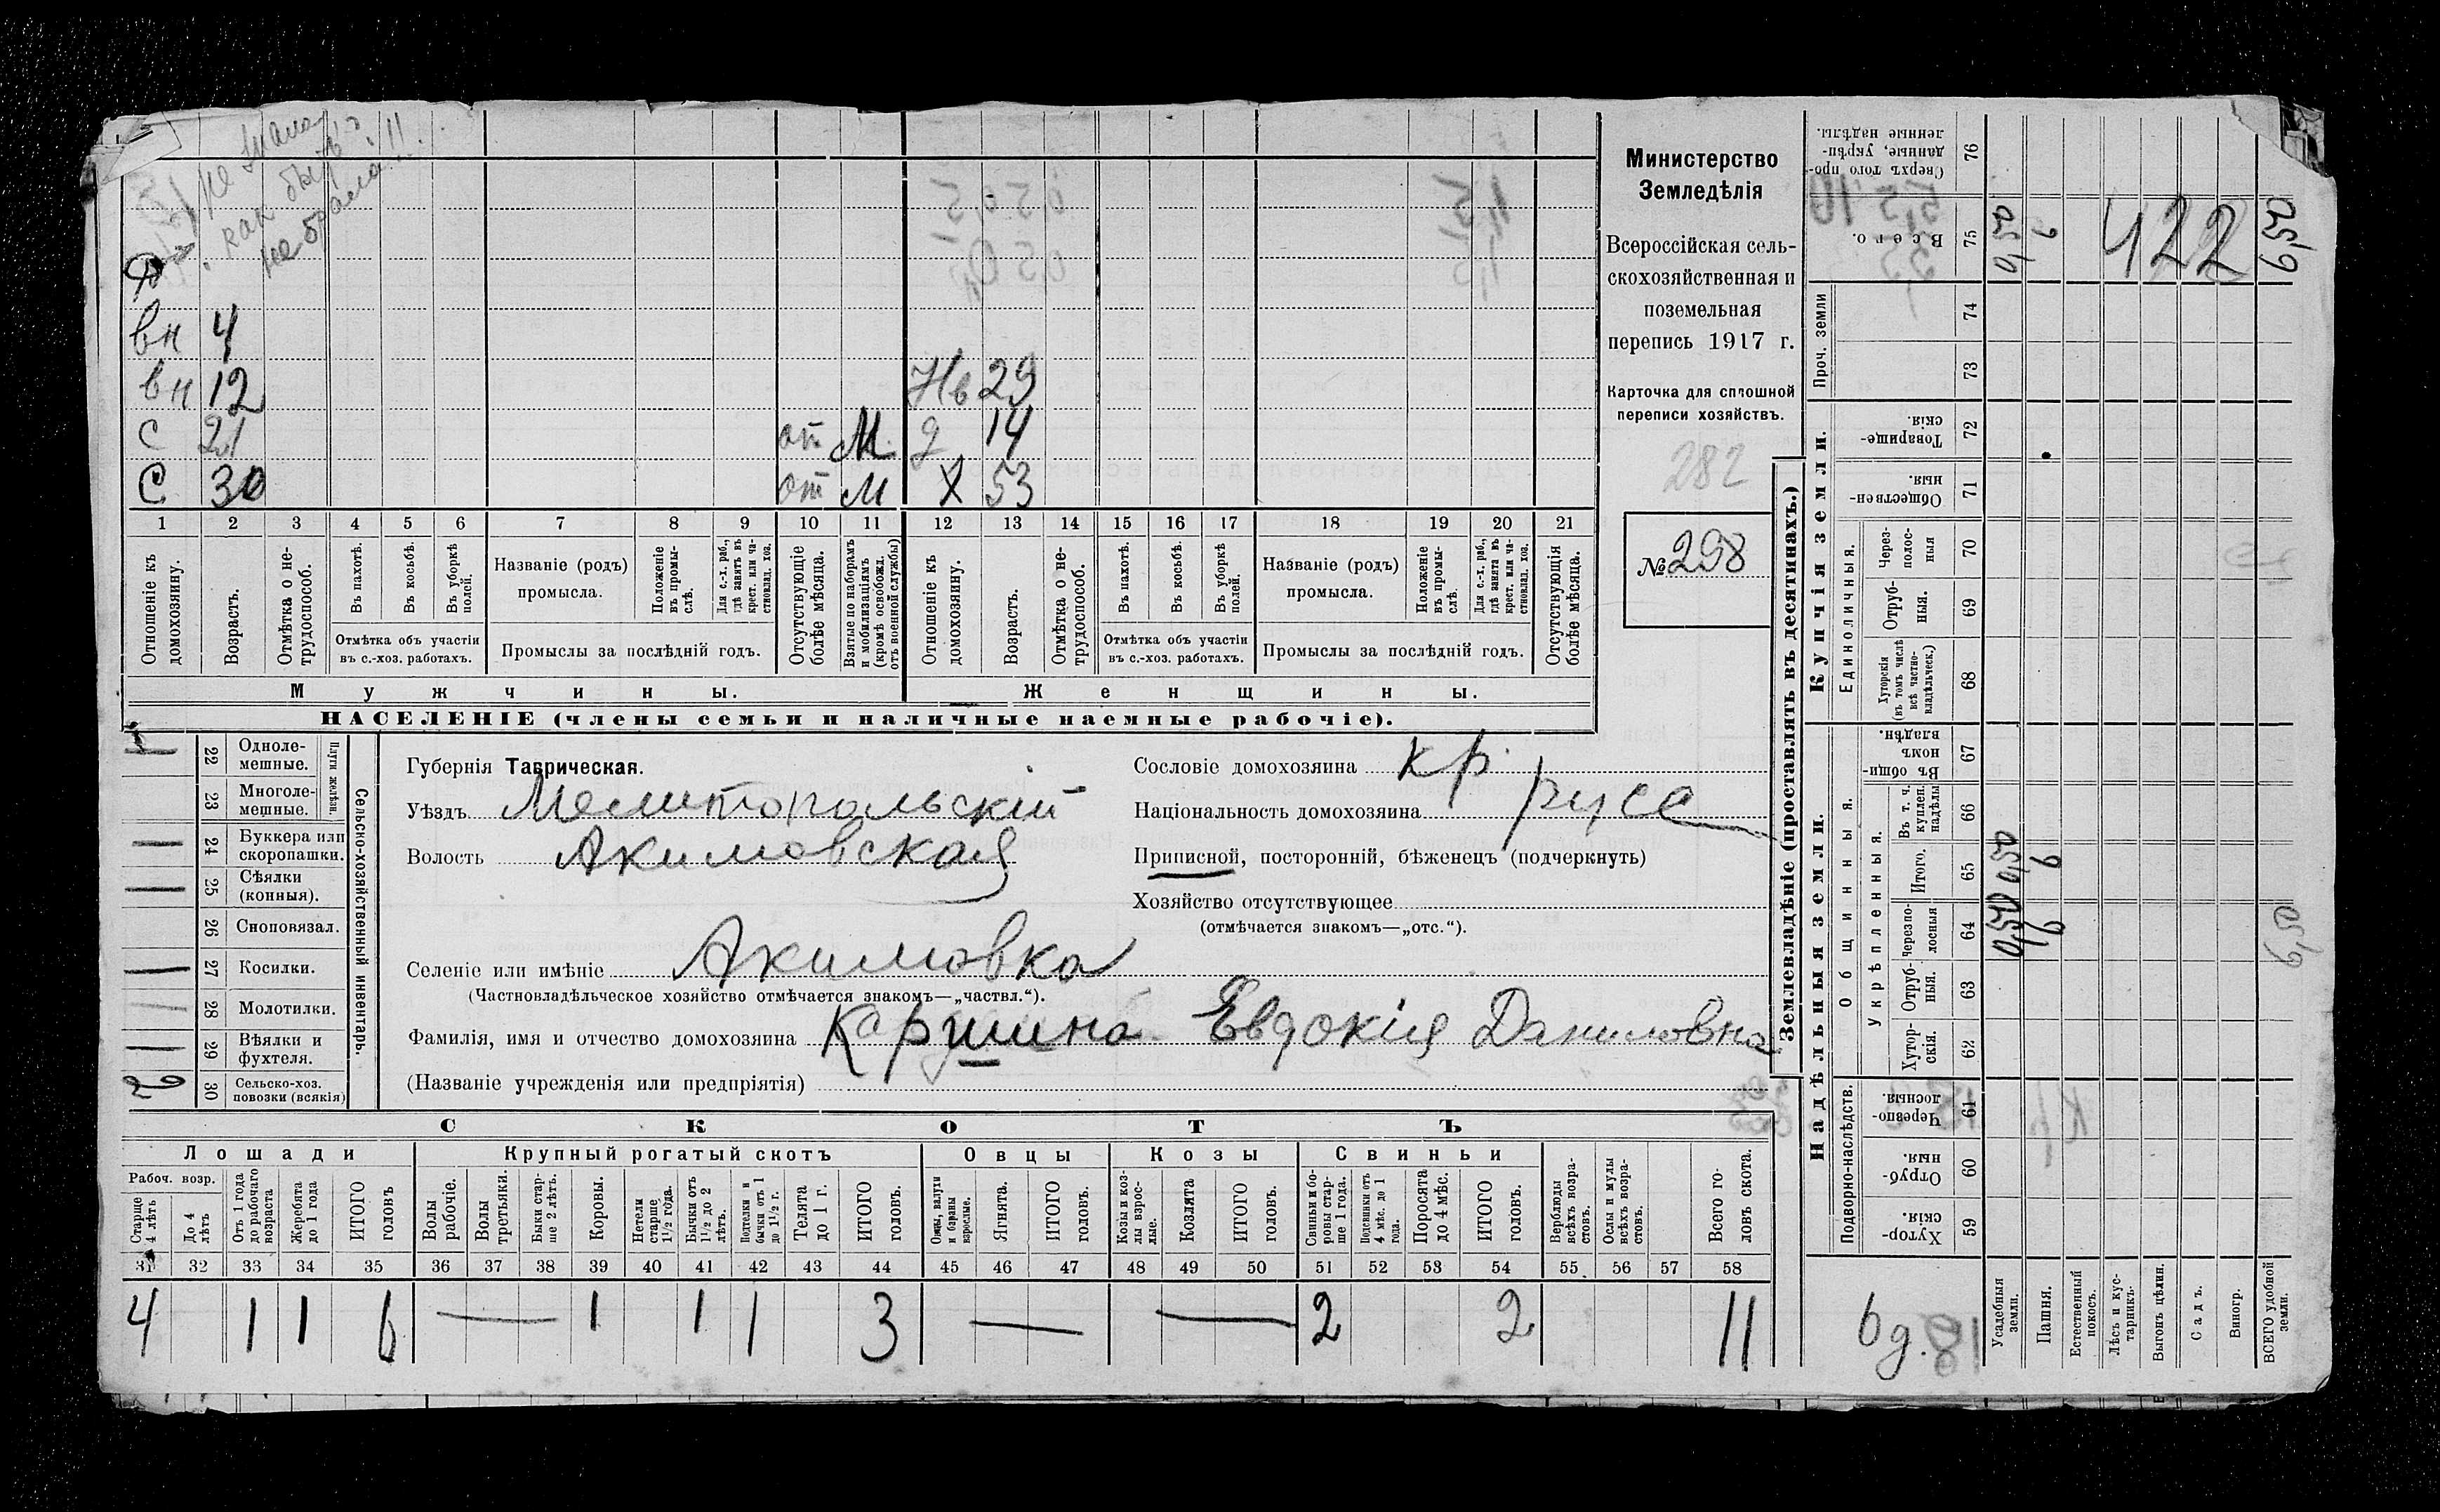 не знала
как быть?
не брала!!!
Ф
вн 4
вн 12 Нв 29
с 21 от М. д 14
С 30 от М Х 53
1 2 3 4 5 6 7 8 9 10 11 12 13 14 15 16 17 18 19 20 21
Отношеніе къ домохозяину.
Возрастъ.
Отмѣтка о нетрудоспособ.
Въ пахотѣ.
Въ косьбѣ.
Въ уборкѣ полей.
Отмѣтка объ участіи
въ с.-хоз. работахъ.
Названіе (родъ)
промысла.
Положеніе въ промыслѣ.
Для с.-х. раб., гдѣ занятъ въ крест. или частновлад. хоз.
Промыслы за послѣдній годъ.
Отсутствующіе болѣе мѣсяца.
Взятые по наборамъ и мобилизаціямъ (кромѣ освобожд. отъ военной службы)
Отношеніе къ домохозяину.
Возрастъ.
Отмѣтка о нетрудоспособ.
Въ пахотѣ.
Въ косьбѣ.
Въ уборкѣ полей.
Отмѣтка объ участіи
въ с.-хоз. работахъ.
Названіе (родъ)
промысла.
Положеніе въ промыслѣ.
Для с.-х. раб., гдѣ занята въ крест. или частновлад. хоз.
Промыслы за послѣдній годъ.
Отсутствующія болѣе мѣсяца.
Мужчины.
Женщины.
НАСЕЛЕНІЕ (члены семьи и наличные наемные рабочіе).
Министерство
Земледѣлія
Всероссійская сель-
скохозяйственная и
поземельная
перепись 1917 г.
Карточка для сплошной
переписи хозяйствъ.
282
№ 298
Сельско-хозяйственный инвентарь.
Плуги желѣзн.
1 22 Одноле-
мешные.
23 Многоле-
мешные.
— 24 Буккера или
скоропашки.
— 25 Сѣялки
(конныя).
26 Сноповязал.
— 27 Косилки.
— 28 Молотилки.
— 29 Вѣялки и
фухтеля.
2 30 Сельско-хоз.
повозки (всякія)
Губернія Таврическая.
Уѣздъ Мелитопольскій
Волость Акимовская
Селеніе или имѣніе Акимовка
(Частновладѣльческое хозяйство отмѣчается знакомъ—„частвл.“).
Фамилія, имя и отчество домохозяина Каршина Евдокія Даниловна
(Названіе учрежденія или предпріятія)
Сословіе домохозяина кр.
Національность домохозяина русс
Приписной, посторонній, бѣженецъ (подчеркнуть)
Хозяйство отсутствующее
(отмѣчается знакомъ—„отс.“).
СКОТЪ
Лошади Крупный рогатый скотъ Овцы Козы Свиньи
Рабоч. возр.
Старше 4 лѣтъ
До 4 лѣтъ
Отъ 1 года до рабочаго возраста
Жеребята до 1 года
ИТОГО головъ
Волы рабочіе.
Волы третьяки.
Быки старше 2 лѣтъ.
Коровы.
Нетели старше 1½ года.
Бычки отъ 1½ до 2 лѣтъ.
Подтелки и бычки отъ 1 до 1½ г.
Телята до 1 г.
ИТОГО головъ.
Овцы, валухи и бараны взрослые.
Ягнята.
ИТОГО головъ.
Козы и козлы взрослые.
Козлята
ИТОГО головъ.
Свиньи и боровы старше 1 года.
Подсвинки отъ 4 мѣс. до 1 года.
Поросята до 4 мѣс.
ИТОГО головъ.
Верблюды всѣхъ возрастовъ.
Ослы и мулы всѣхъ возрастовъ.
Всего головъ скота.
31 32 33 34 35 36 37 38 39 40 41 42 43 44 45 46 47 48 49 50 51 52 53 54 55 56 57 58
4 1 1 6 — 1 1 1 3 — — 2 2 11
Землевладѣніе (проставлять въ десятинахъ.)
Надѣльныя земли.
Купчія земли.
Проч. земли
Подворно-наслѣдств.
Общинныя.
Укрѣпленныя.
Единоличныя.
Сверхъ того проданные, укрѣпленные надѣлы. 76
Всего. 75 0,50 6 422 6,50
74
73
Товарищескія 72
Общественныя. 71
Черезполосныя 70
Отрубныя. 69
Хуторскія (въ томъ числѣ всѣ частновладѣльческ.) 68
Въ общинномъ владѣн. 67
Въ т. ч. куплен. надѣлы 66
Итого. 65 0,50 6
Черезполосныя 64 0,50 6 6,50
Отрубныя. 63
Хуторскія. 62
Черезполосныя. 61
Отрубныя. 60
Хуторскія. 59
6 д.
Усадебныя земли.
Пашня.
Естественный покосъ.
Лѣсъ и кустарникъ.
Выгонъ цѣлин.
Садъ.
Виногр.
ВСЕГО удобной земли.